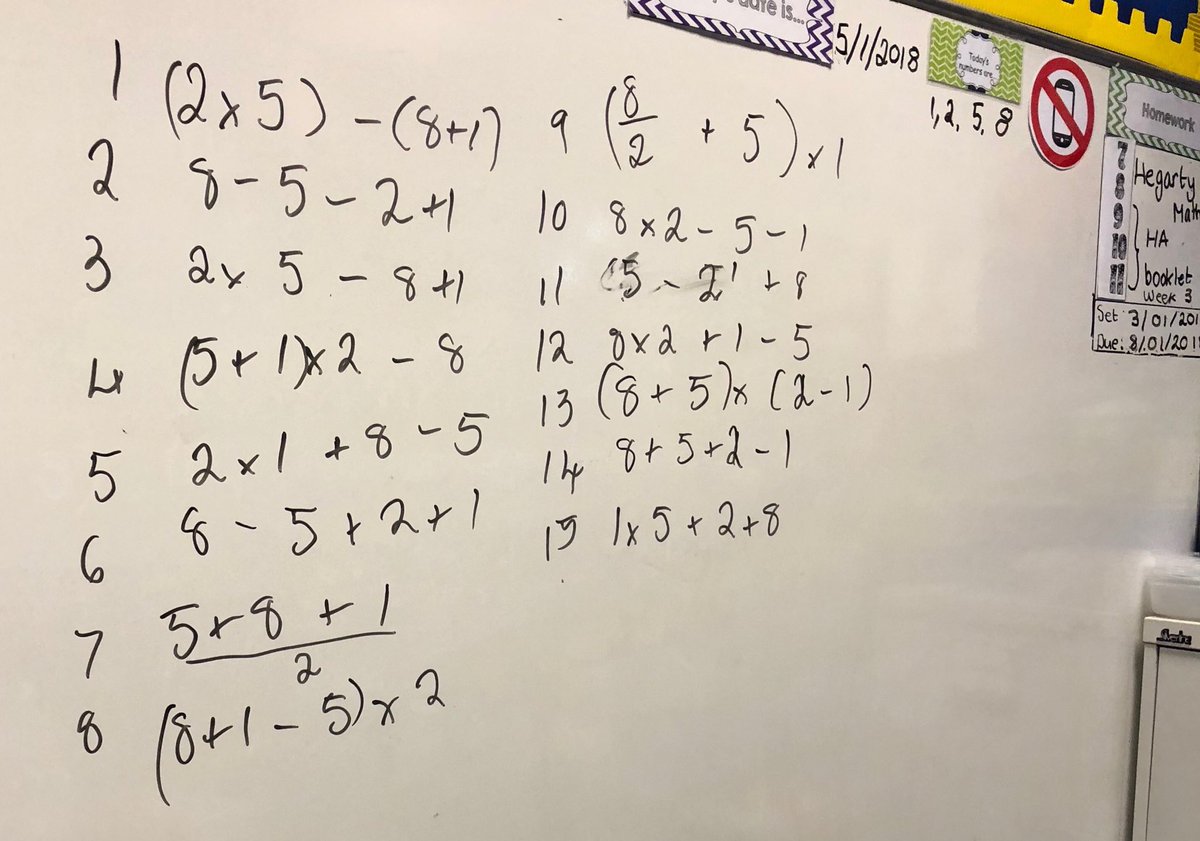 1 (2x5) - (8+1)
2 8 - 5 - 2 +1
3 2x 5 - 8 +1
4 (5+1)x2 - 8
5 2x1 +8 -5
6 8 - 5 + 2+1
7 5+8+1
2
8 (8+1-5)x2
9 (8/2 + 5) x1
10 8x2 - 5 - 1
11 (5 - 2 1 + 8
12 8x2 +1 - 5
13 (8+5)x (2-1)
14 8+5+2-1
15 1x5+2+8
date is...
5/1/2018
Today's
numbers are
1, 2, 5, 8
Homework
7 Hegarty
8 Math
9 HA
10 booklet
11 Week 3
Set 3/01/201
Due: 8/01/201